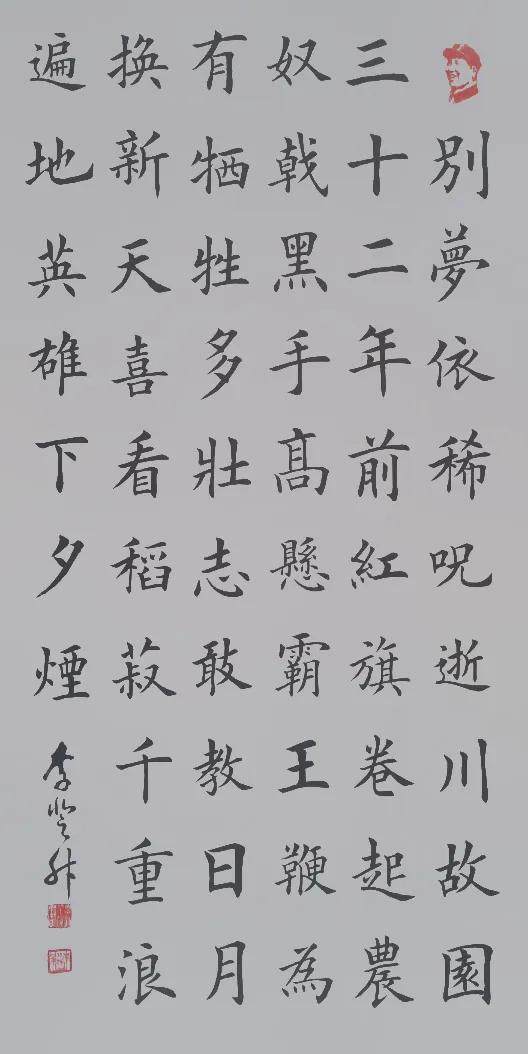 別夢依稀呪逝川故園
三十二年前紅旗卷起農
奴戟黑手高懸霸王鞭為
有牺牲多壯志敢教日月
換新天喜看稻菽千重浪
遍地英雄下夕煙
李登舟